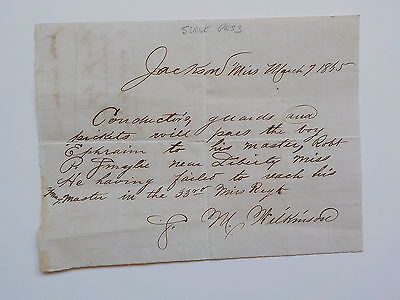 SLAVE PASS
Jackson Miss March 7 1865
Conductors guards and
pickets will pass the boy
Ephraim to his master, Robt
R. Smythe near Liberty Miss
He having failed to reach his
Young Master in the 33rd Miss Regt
J. M. Wilkinson